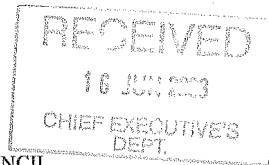 RECEIVED
16 JUN 2003
CHIEF EXECUTIVE'S
DEPT.
NCIL